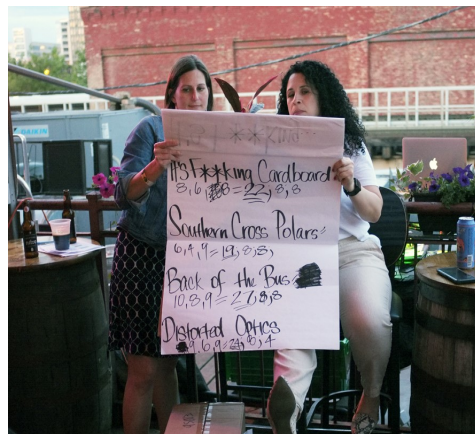 DAIKIN
It's F**king Cardboard
8, 6, 8 = 22, 8, 8
Southern Cross Polars
6, 4, 9 = 19, 8, 8,
Back of the Bus
10, 8, 9 = 27, 8, 8
Distorted Optics
9, 6, 9 = 24, 6, 4